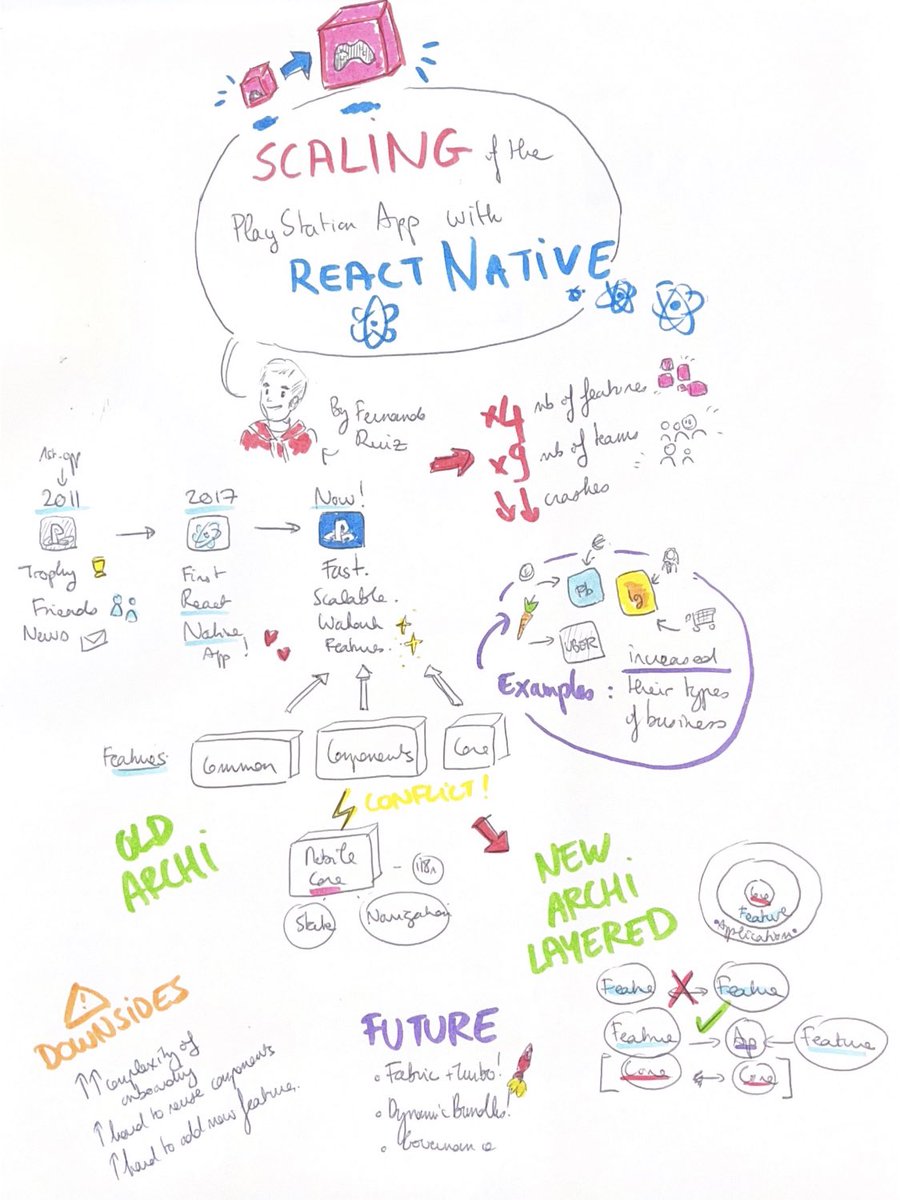 SCALING of the
PlayStation App with
REACT NATIVE
By Fernando
Ruiz
x4 nb of features
x9 nb of teams
crashes
1st app
2011
Trophy
Friends
News
2017
First
React
Native
App!
Now!
Fast.
Scalable.
Features.
Pb
Ig
UBER
Examples: increased
their types
of business
Features:
Common
Components
Core
CONFLICT!
OLD
ARCHI
Mobile
Core
i18n
State
Navigation
NEW
ARCHI
LAYERED
Core
Feature
Application
Feature
Feature
Feature
App
Feature
Core
Core
DOWNSIDES
complexity of
onboarding
hard to reuse components
hard to add new feature.
FUTURE
• Fabric + Turbo!
• Dynamic Bundles!
• Governance